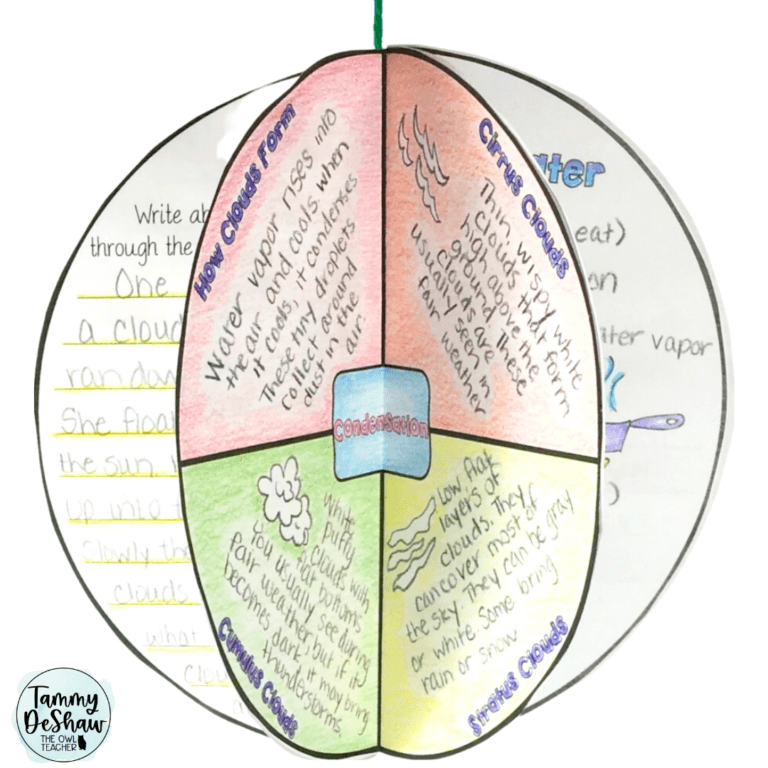 Write ab
through the
One
a cloud
ran dow
She float
the sun
up into t
Slowly the
clouds
what
clou
How Clouds Form
Water vapor rises into
the air and cools. when
it cools, it condenses
These tiny droplets
collect around
dust in the
air.
Cirrus Clouds
Thin, wispy white
clouds that form
high above the
ground. These
clouds are
usually seen in
fair weather
Condensation
White
puffy
clouds with
flat bottoms
You usually see during
fair weather, but if it
becomes dark, it may bring
thunderstorms.
Cumulus Clouds
Low flat
layers of
clouds. They
can cover most of
the sky. They can be gray
or white. Some bring
rain or snow
Stratus Clouds
ater
eat)
on
ater vapor
)
Tammy
DeShaw
THE OWL
TEACHER